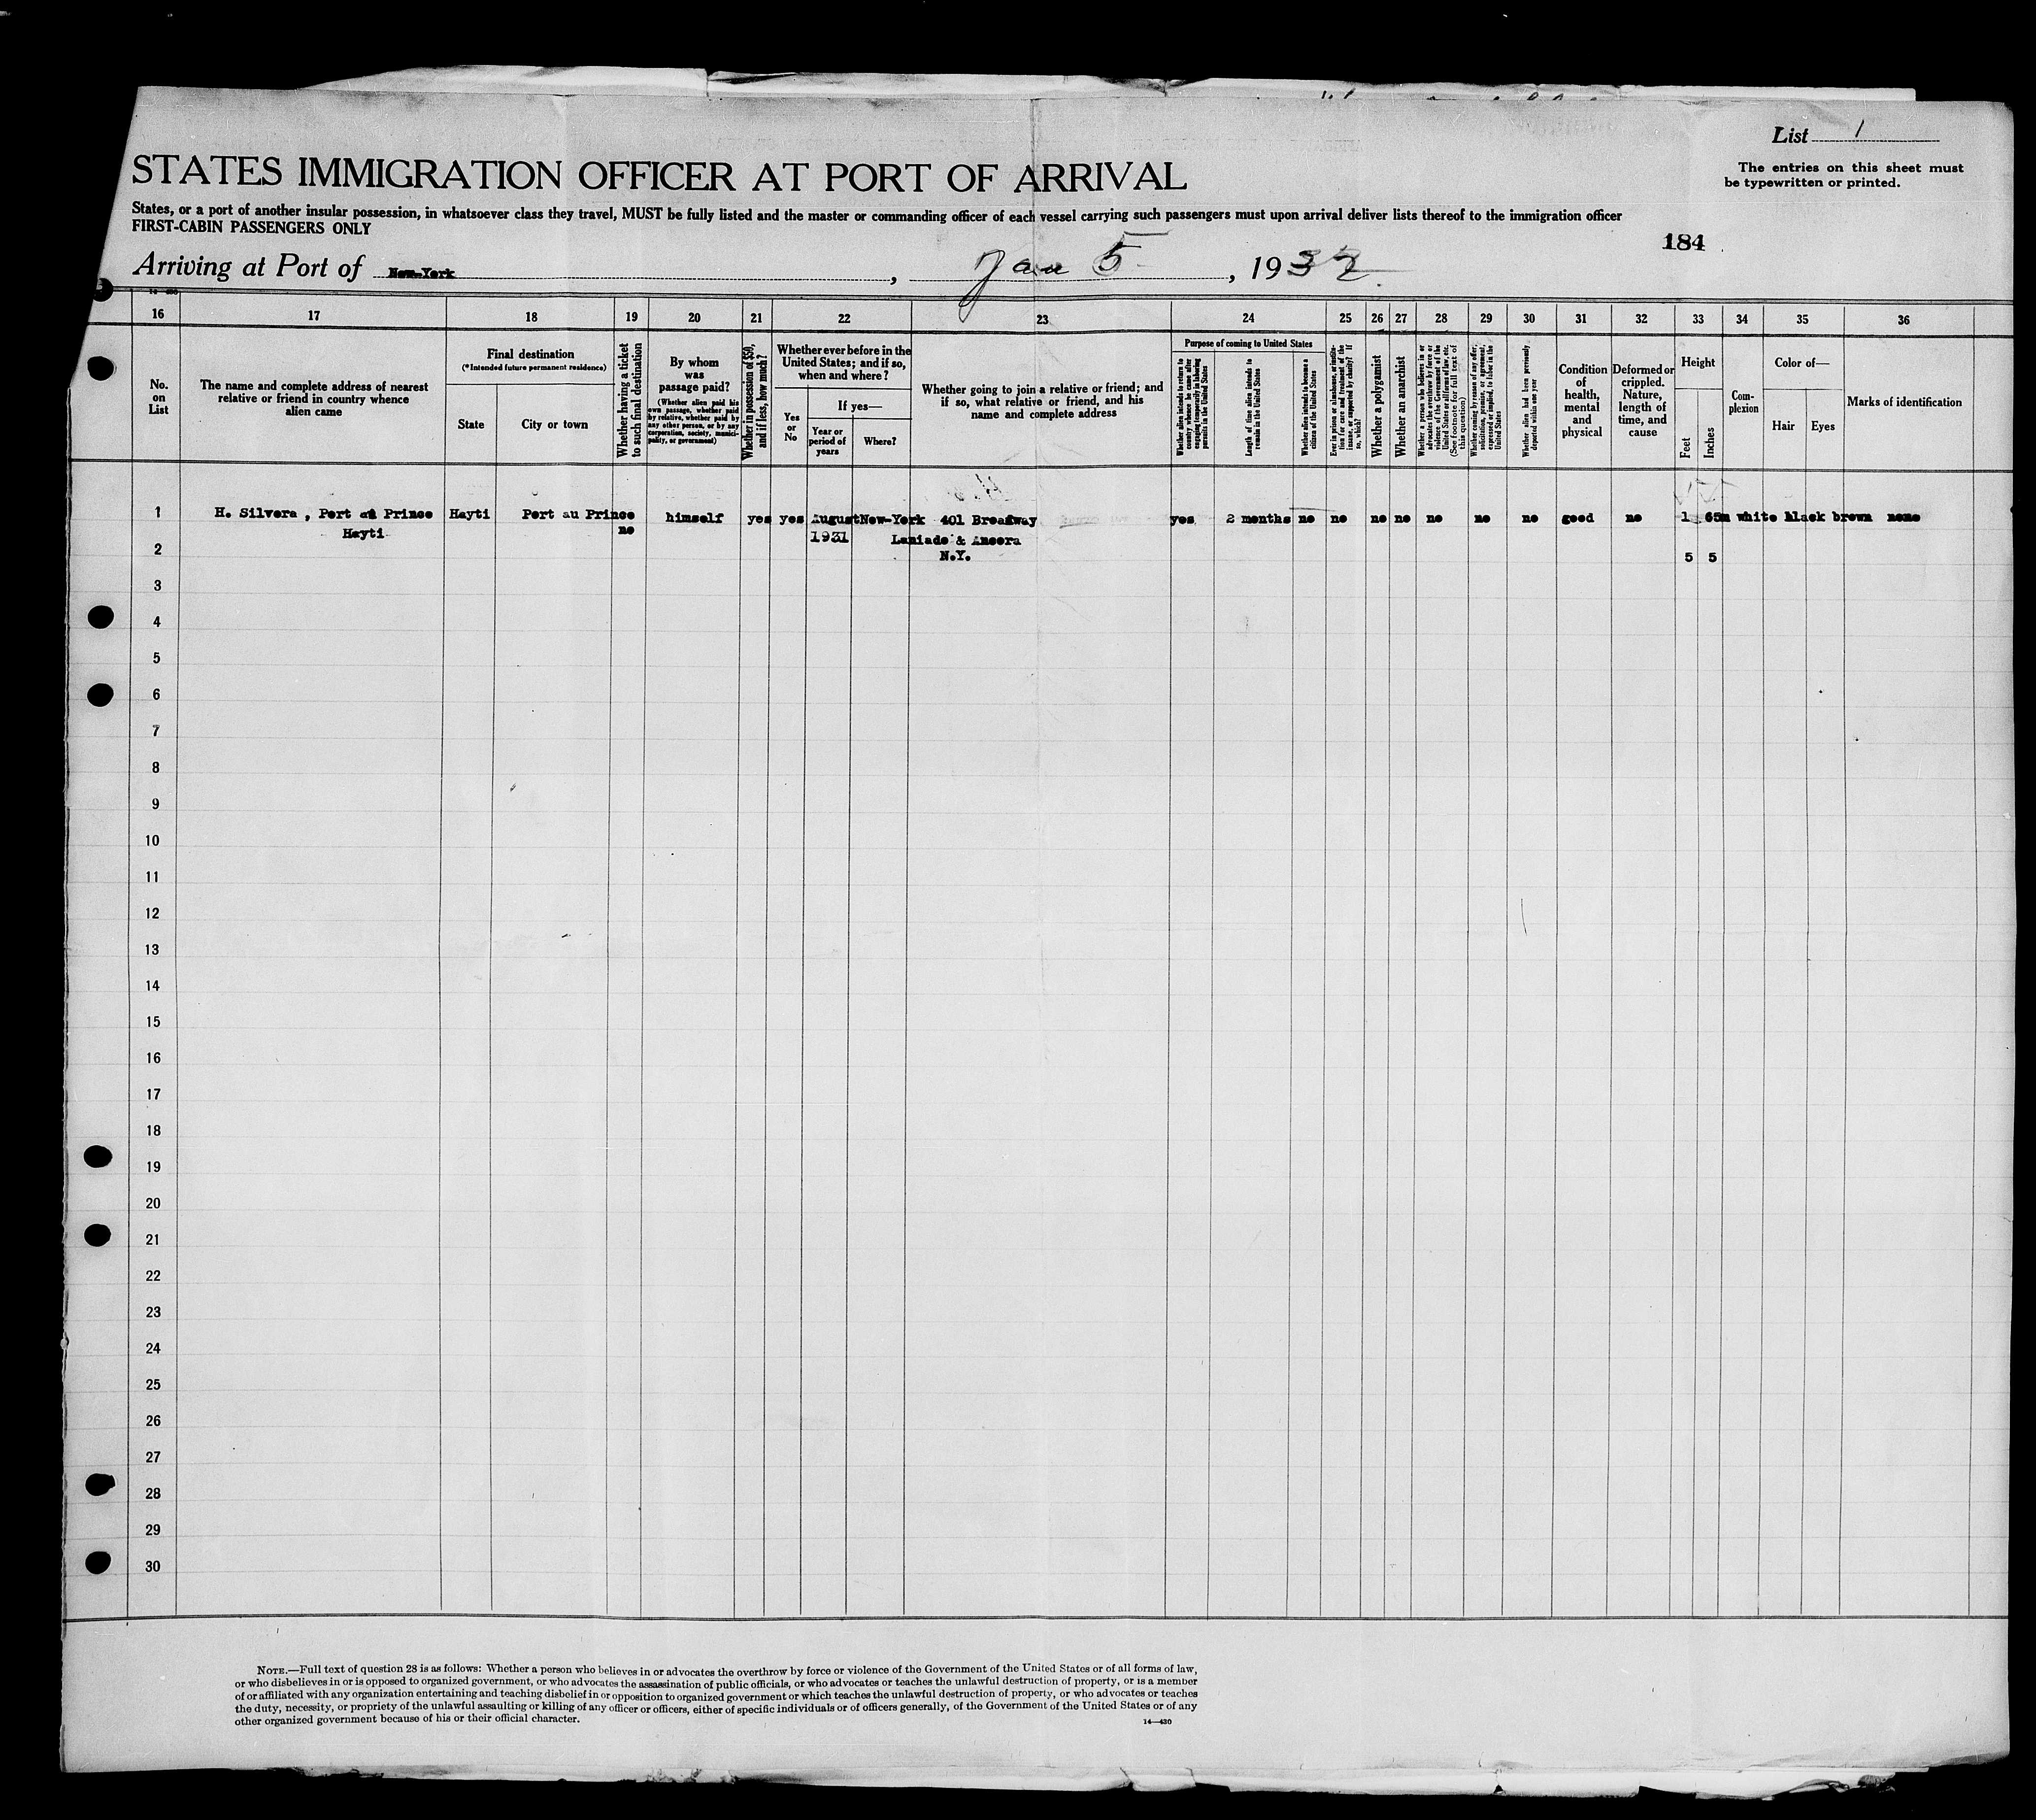 List 1
The entries on this sheet must
be typewritten or printed.
STATES IMMIGRATION OFFICER AT PORT OF ARRIVAL
States, or a port of another insular possession, in whatsoever class they travel, MUST be fully listed and the master or commanding officer of each vessel carrying such passengers must upon arrival deliver lists thereof to the immigration officer
FIRST-CABIN PASSENGERS ONLY
184
Arriving at Port of New-York, Jan 5, 1932
16 17 18 19 20 21 22 23 24 25 26 27 28 29 30 31 32 33 34 35 36
No.
on
List
The name and complete address of nearest
relative or friend in country whence
alien came
Final destination
(*Intended future permanent residence)
State
City or town
Whether having a ticket
to such final destination
By whom
was
passage paid?
(Whether alien paid his
own passage, whether paid
by relative, whether paid by
any other person, or by any
corporation, society, munici-
pality, or government)
Whether in possession of $50,
and if less, how much?
Whether ever before in the
United States; and if so,
when and where?
Yes
or
No
If yes—
Year or
period of
years
Where?
Whether going to join a relative or friend; and
if so, what relative or friend, and his
name and complete address
Purpose of coming to United States
Whether alien intends to return to
country whence he came after
engaging temporarily in laboring
pursuits in the United States
Length of time alien intends to
remain in the United States
Whether alien intends to become a
citizen of the United States
Ever in prison or almshouse, or institu-
tion for care and treatment of the
insane, or supported by charity? If
so, which?
Whether a polygamist
Whether an anarchist
Whether a person who believes in or
advocates the overthrow by force or
violence of the Government of the
United States or all forms of law, etc.
(See footnote for full text of
this question)
Whether coming by reason of any offer,
solicitation, promise, or agreement,
expressed or implied, to labor in the
United States
Whether alien had been previously
deported within one year
Condition
of
health,
mental
and
physical
Deformed or
crippled.
Nature,
length of
time, and
cause
Height
Feet
Inches
Com-
plexion
Color of—
Hair
Eyes
Marks of identification
1 H. Silvera , Port au Prince Hayti Port au Prince himself yes yes August New-York 401 Broadway yes 2 months no no no no no no no good no 1 65m white black brown none
Hayti no 1931 Laniado & Ancora
2 N.Y. 5 5
3
4
5
6
7
8
9
10
11
12
13
14
15
16
17
18
19
20
21
22
23
24
25
26
27
28
29
30
NOTE.—Full text of question 28 is as follows: Whether a person who believes in or advocates the overthrow by force or violence of the Government of the United States or of all forms of law,
or who disbelieves in or is opposed to organized government, or who advocates the assassination of public officials, or who advocates or teaches the unlawful destruction of property, or is a member
of or affiliated with any organization entertaining and teaching disbelief in or opposition to organized government or which teaches the unlawful destruction of property, or who advocates or teaches
the duty, necessity, or propriety of the unlawful assaulting or killing of any officer or officers, either of specific individuals or of officers generally, of the Government of the United States or of any
other organized government because of his or their official character.
14—430